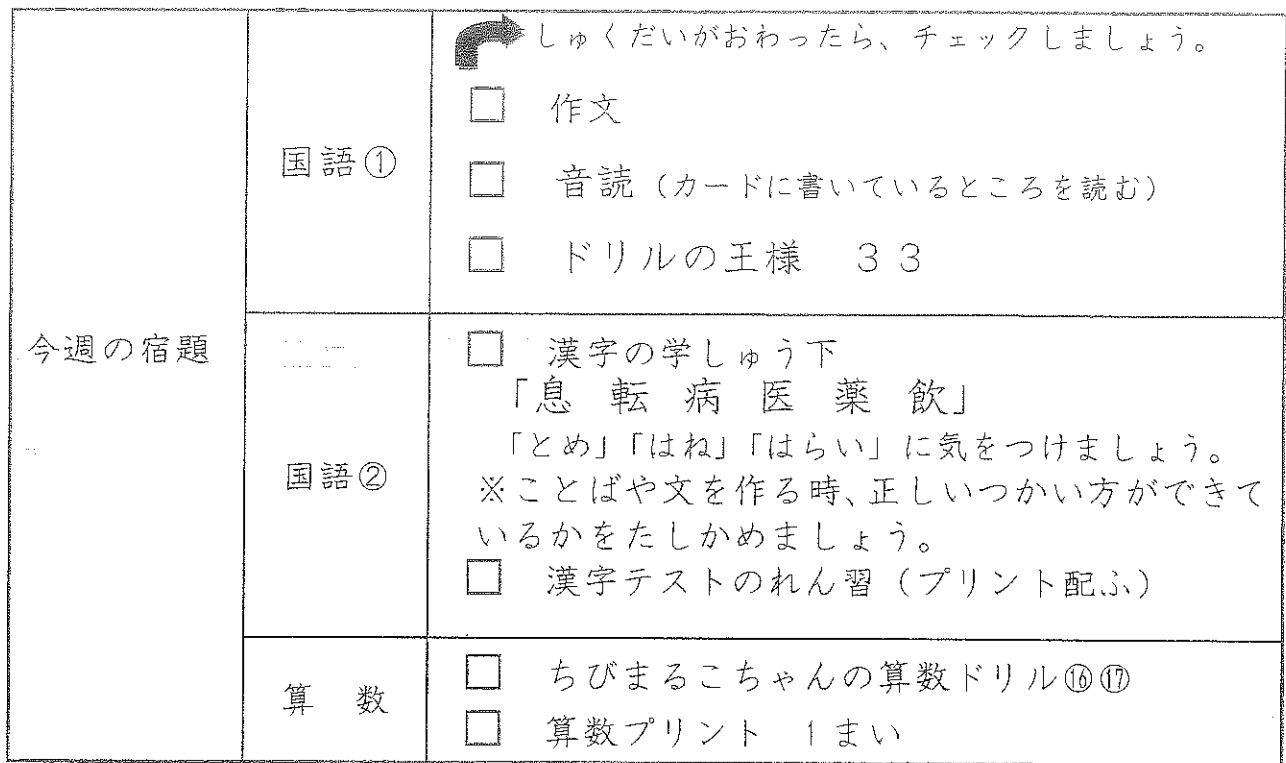 今週の宿題
国語①
しゅくだいがおわったら、チェックしましょう。
□ 作文
□ 音読（カードに書いているところを読む）
□ ドリルの王様　３３
国語②
□ 漢字の学しゅう下
「息　転　病　医　薬　飲」
「とめ」「はね」「はらい」に気をつけましょう。
※ことばや文を作る時、正しいつかい方ができて
いるかをたしかめましょう。
□ 漢字テストのれん習（プリント配ふ）
算　数
□ ちびまるこちゃんの算数ドリル⑯⑰
□ 算数プリント　１まい